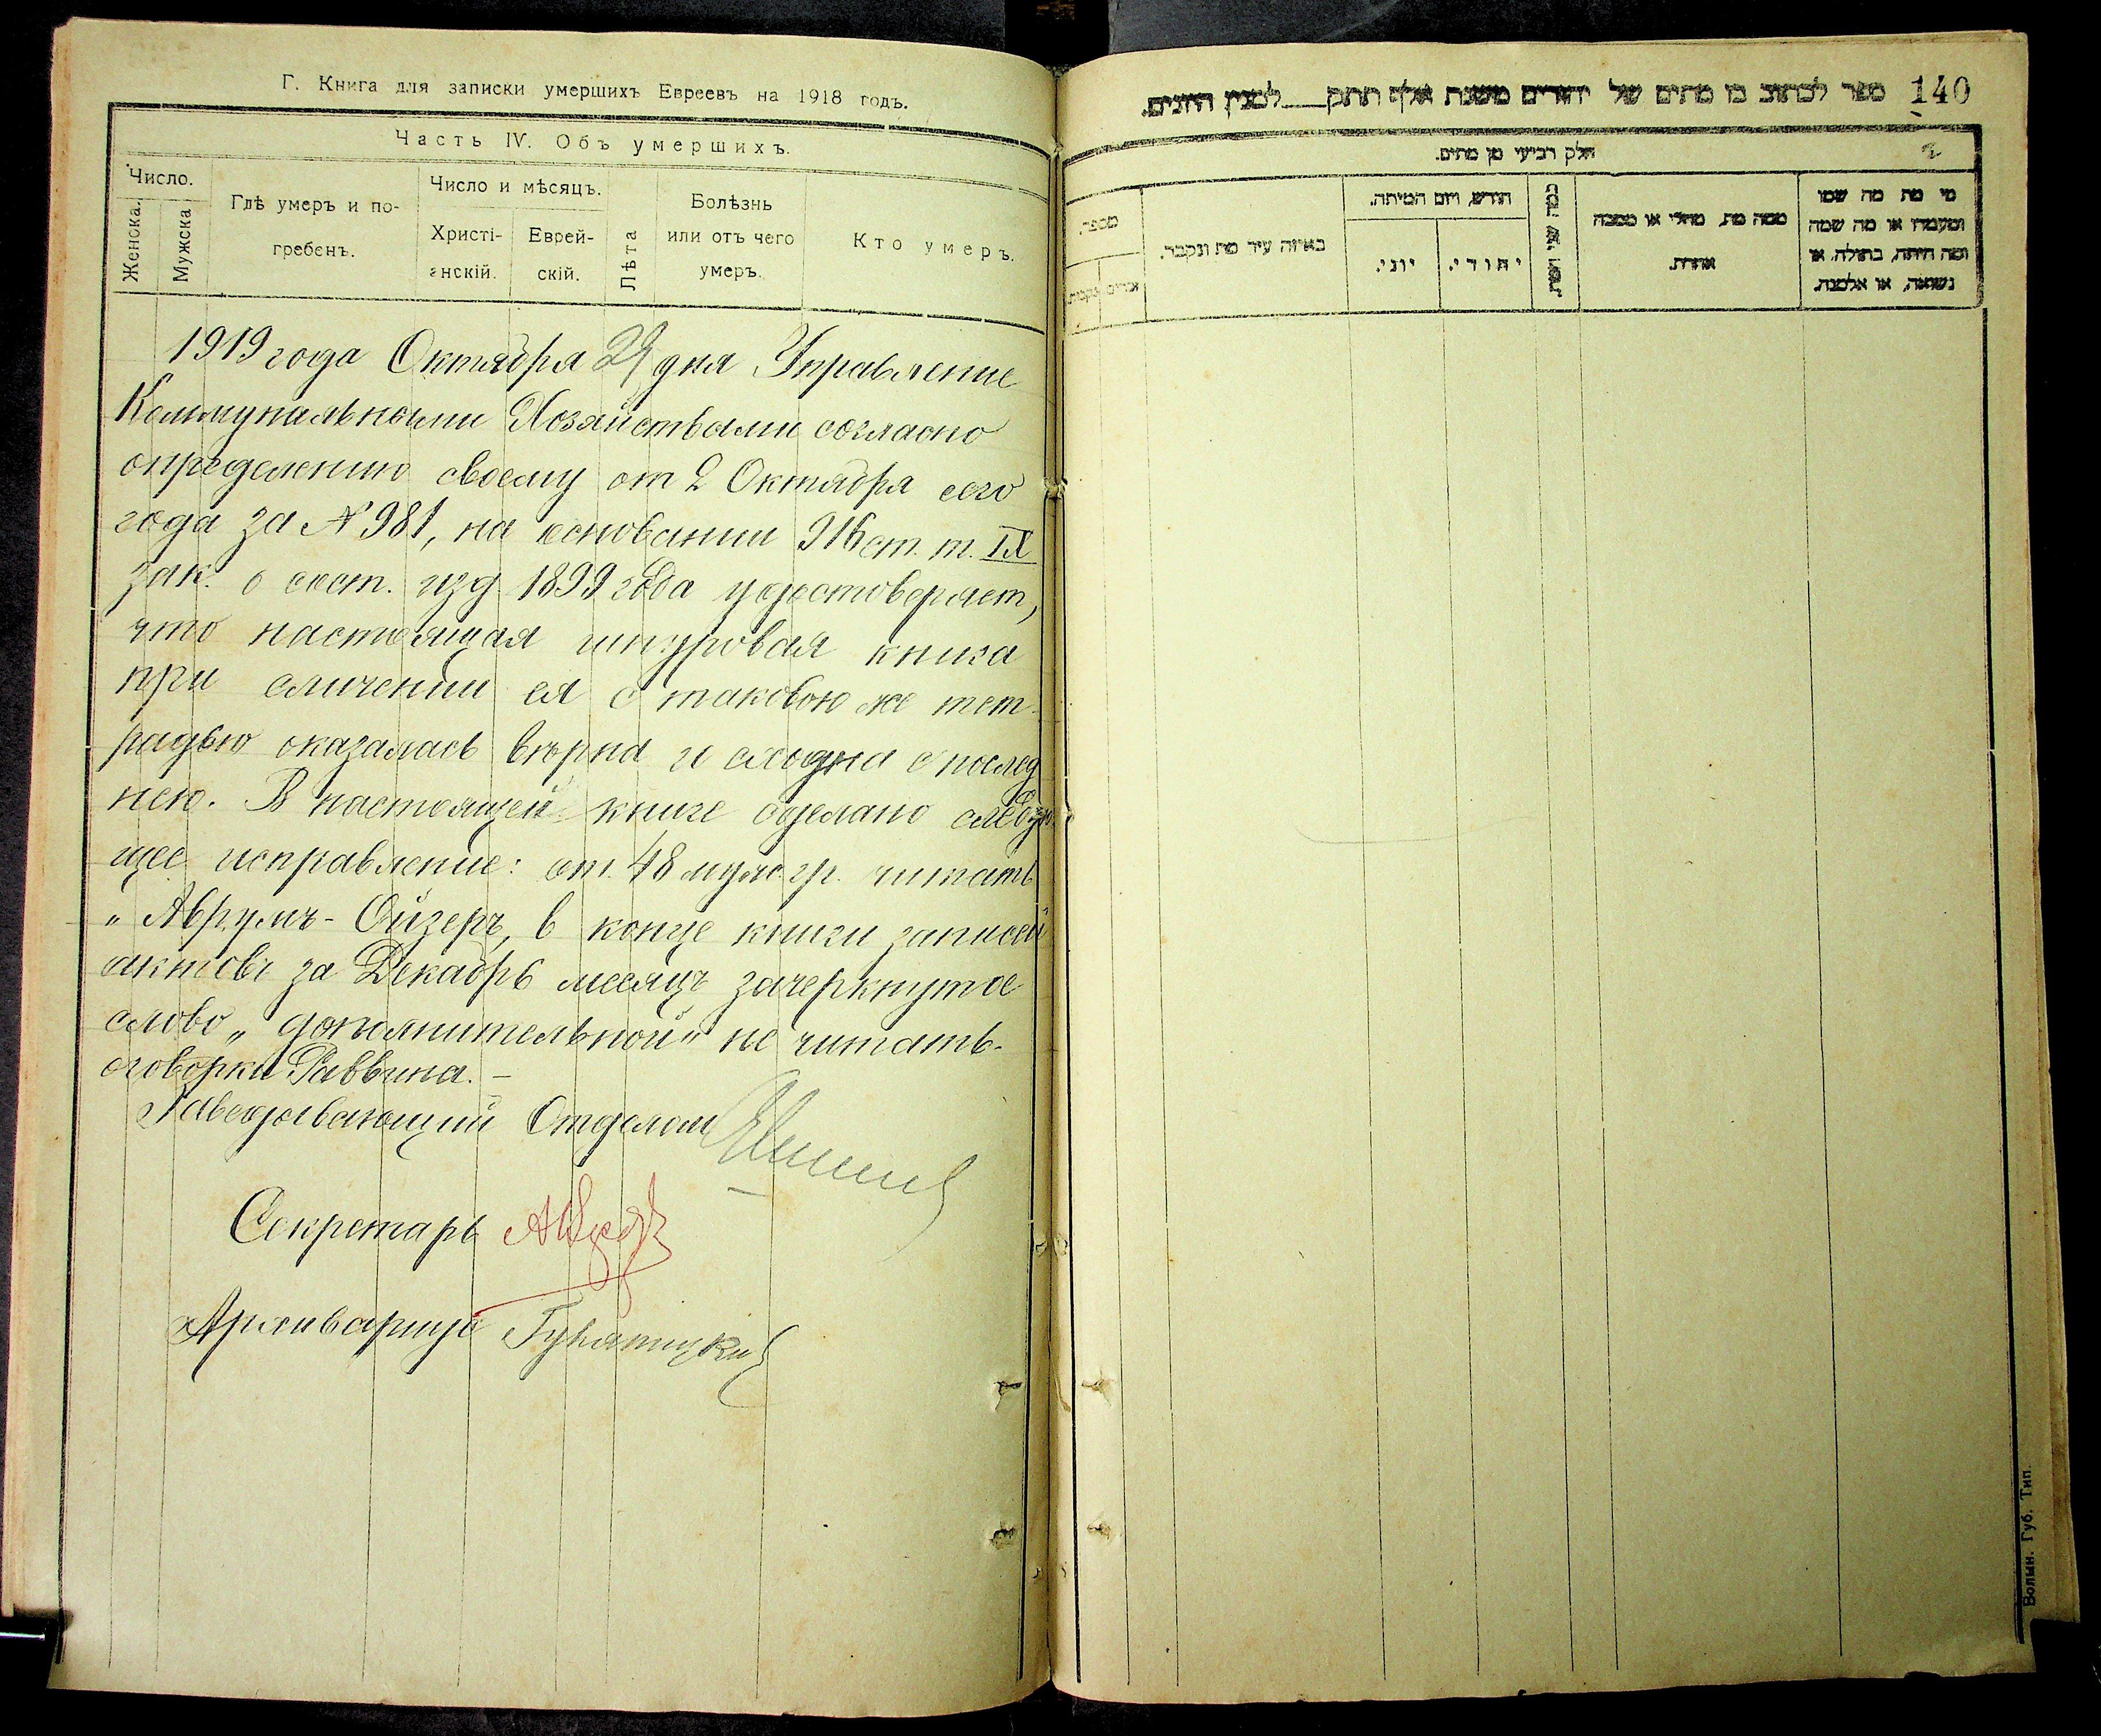 Г. Книга для записки умершихъ Евреевъ на 1918 годъ.
Часть IV. Объ умершихъ.
Число.
Женска.
Мужска
Гдѣ умеръ и по-
гребенъ.
Число и мѣсяцъ.
Христі-
анскій.
Еврей-
скій.
Лѣта
Болѣзнь
или отъ чего
умеръ.
Кто умеръ.
1919 года Октября 29 дня Управление
Коммунальными Хозяйствами согласно
определению своему от 2 Октября сего
года за № 981, на основании 916 ст. т. IX
зак. о сост. изд 1899 года удостоверяет,
что настоящая шнуровая книга
при сличении ея с таковою же тет-
радью оказалась вѣрна и сходна с послед
нею. В настоящей книге сделано следую
щее исправление: ст. 48 муж. гр. читать
„Аврумъ-Ойзеръ, в конце книги записей
актовъ за Декабрь месяцъ зачеркнутое
слово „дополнительной" не читать-
оговорка Раввина. –
Заведывающий Отделом
Секретарь
Архивариус
ספר לכתוב בו מתים של יהודים משנת אלף תתק___למנין היונים.
140
חלק רביעי מן מתים.
מספר.
באיזה עיר מת ונקבר.
חודש, ויום המיתה.
יוני.
יהודי.
ממה מת, מחלי או מסבה
אחרת.
מי מת מה שמו
ומעמדו או מה שמה
ומה היתה, בתולה, או
נשואה, או אלמנה.
Волын. Губ. Тип.